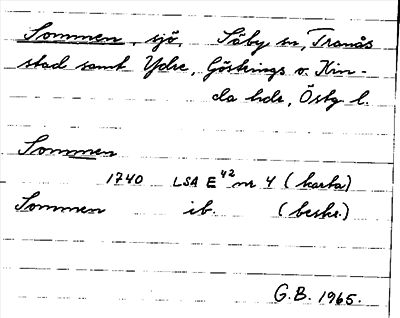 Sommen, sjö, Säby sn, Tranås
stad samt Ydre, Göstrings o. Kin-
da hdr, Östg l.
Sommen
1740 LSA E42 nr 4 (karta)
Sommen ib. (beskr.)
G.B. 1965.